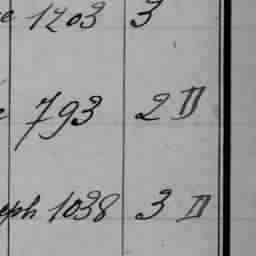 1203 3
793 2 D
eph 1038 3 D